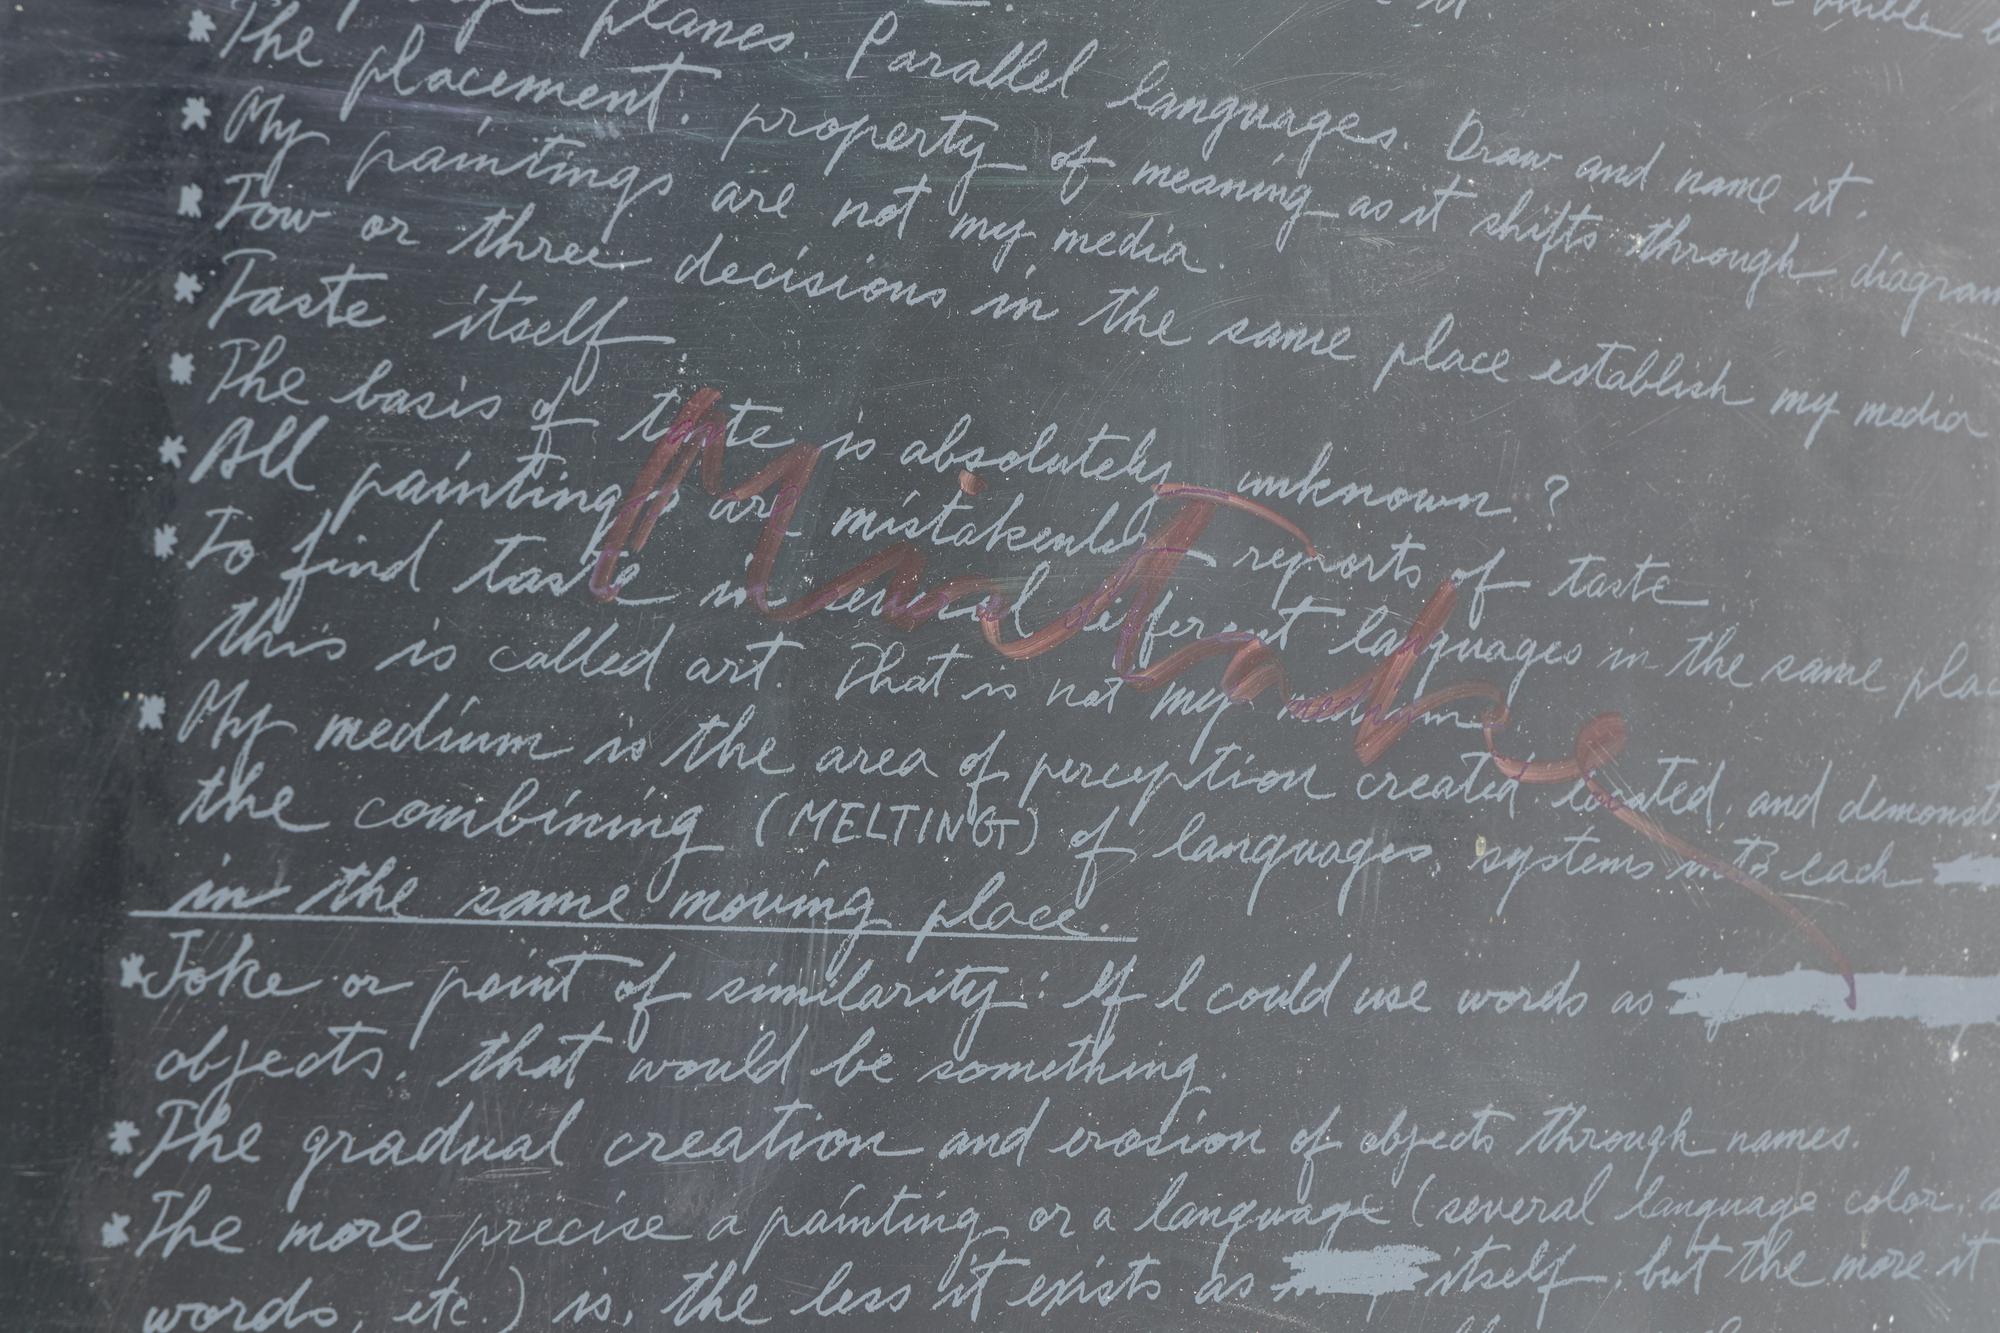 planes. Parallel languages. Draw and name it.
* The placement. property of meaning as it shifts through
* My paintings are not my media.
* Tow or three decisions in the same place establish my media
* Taste itself
* The basis of taste is absolutely unknown?
* All paintings are mistakenly reports of taste
* To find taste in several different languages in the same
this is called art. That is not my medium
* My medium is the area of perception created, located, and
the combining (MELTING) of languages, systems into each
in the same moving place.
* Joke or point of similarity: If I could use words as
objects, that would be something.
* The gradual creation and erosion of objects through names.
* The more precise a painting or a language (several language color,
words, etc.) is, the less it exists as itself, but the more it
Mistake